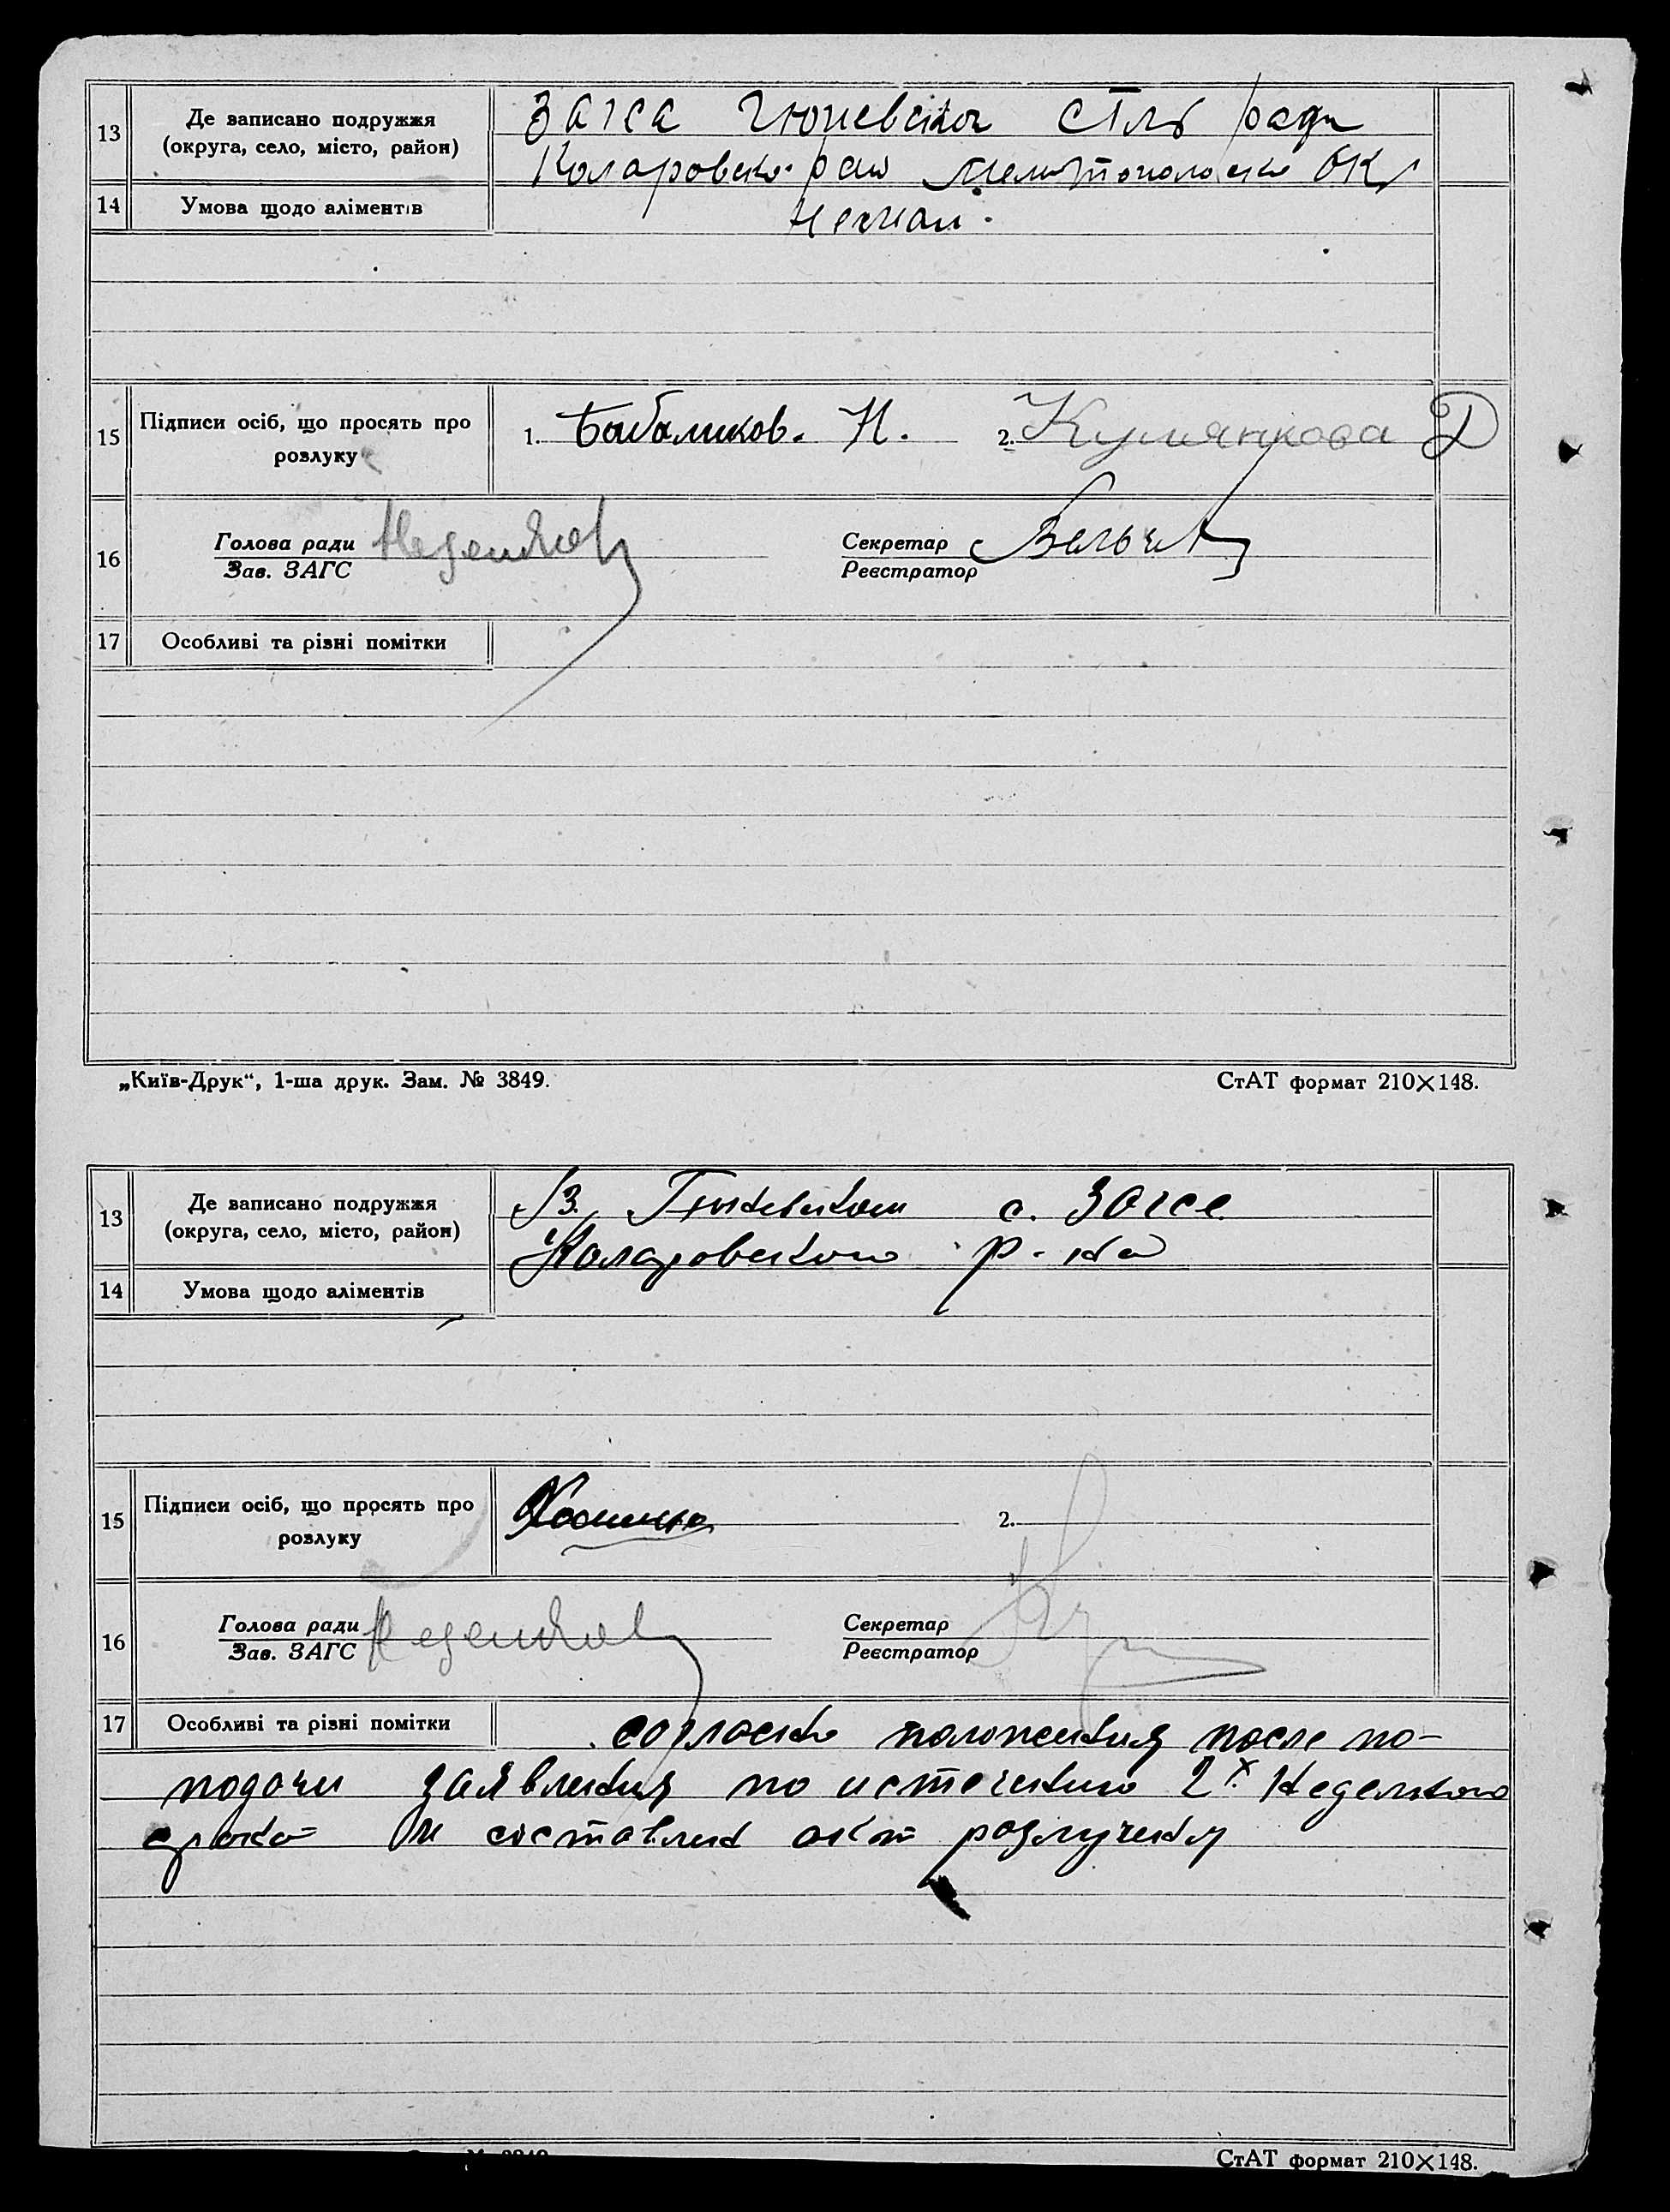 13 Де записано подружжя (округа, село, місто, район) Загса Гюневской сіль ради
Коларовско раи Мелитопольско ОКР
14 Умова щодо аліментів
15 Підписи осіб, що просять про розлуку 1. Бабаликов. Н. 2. Кулинкова Д
16 Голова ради
Зав. ЗАГС
Секретар
Реєстратор
17 Особливі та різні помітки
„Київ-Друк“, 1-ша друк. Зам. № 3849.
СтАТ формат 210×148.
13 Де записано подружжя (округа, село, місто, район) с. Загсе
Коларовского р-на
14 Умова щодо аліментів
15 Підписи осіб, що просять про розлуку 2.
16 Голова ради
Зав. ЗАГС
Секретар
Реєстратор
17 Особливі та різні помітки согласно положения после по-
подачи заявления по истечению 2х. Недельного
срока и составлен акт розлучения
СтАТ формат 210×148.